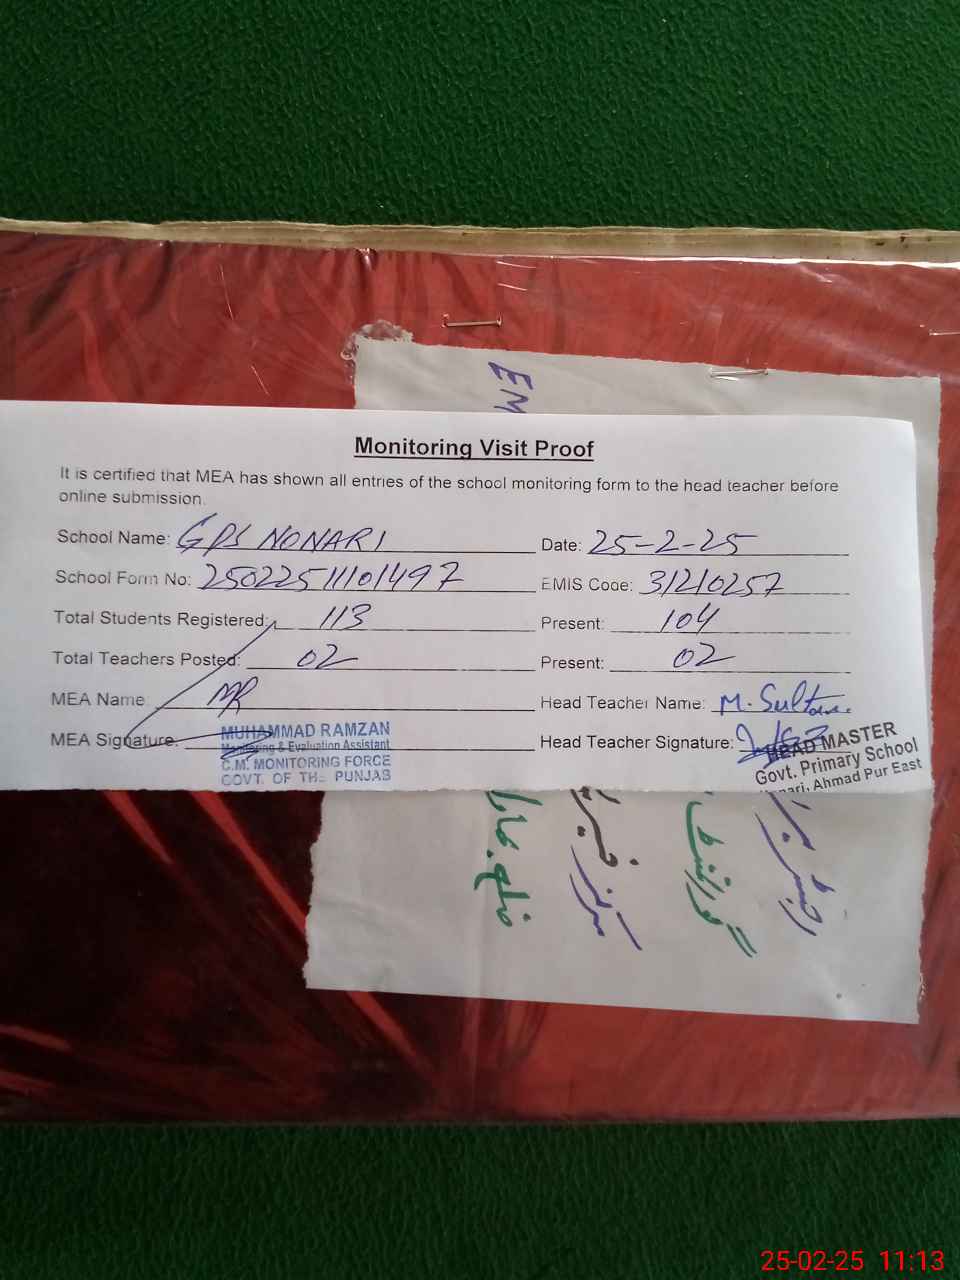 EM
Monitoring Visit Proof
It is certified that MEA has shown all entries of the school monitoring form to the head teacher before
online submission.
School Name: GPS NONARI Date: 25-2-25
School Form No: 25022511101497 EMIS Code: 31210257
Total Students Registered: 113 Present: 104
Total Teachers Posted: 02 Present: 02
MEA Name: MR Head Teacher Name: M. Sultan
MEA Signature: Head Teacher Signature:
MUHAMMAD RAMZAN
Monitoring & Evaluation Assistant
C.M. MONITORING FORCE
GOVT. OF THE PUNJAB
HEAD MASTER
Govt. Primary School
Nonari, Ahmad Pur East
رجسٹر
گورنمنٹ
مرکز
ضلع
25-02-25 11:13